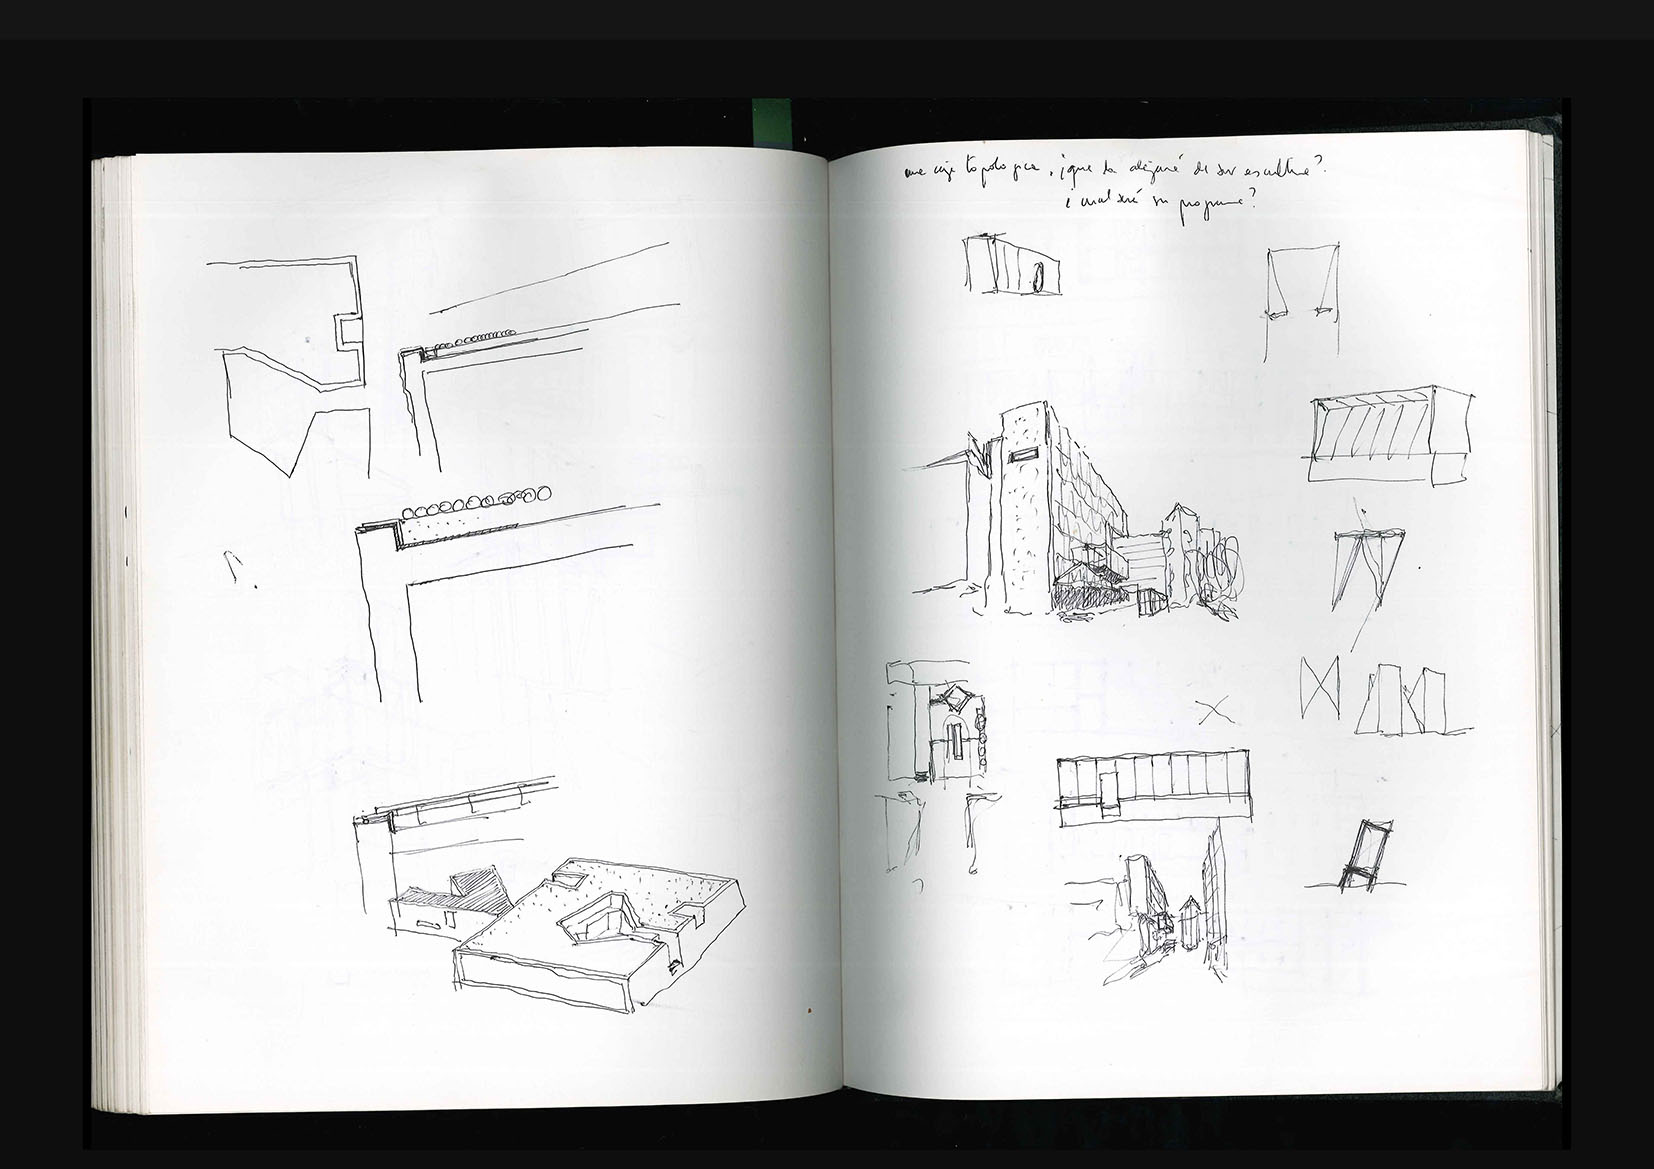 una caja topológica, ¿que la alejará de ser escultura?
¿cual será su programa?